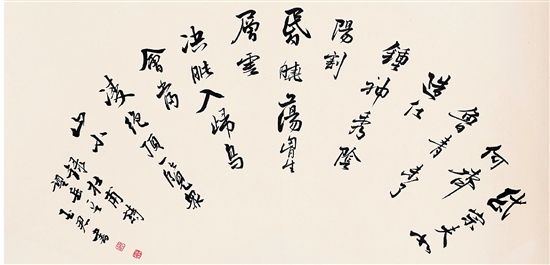 岱宗夫如
何齊
魯青未了
造化
鍾神秀陰
陽割
昏曉蕩胷生
層雲
決眥入歸鳥
會當
凌絕頂一覽眾
山小
錄杜甫詩
望岳 書